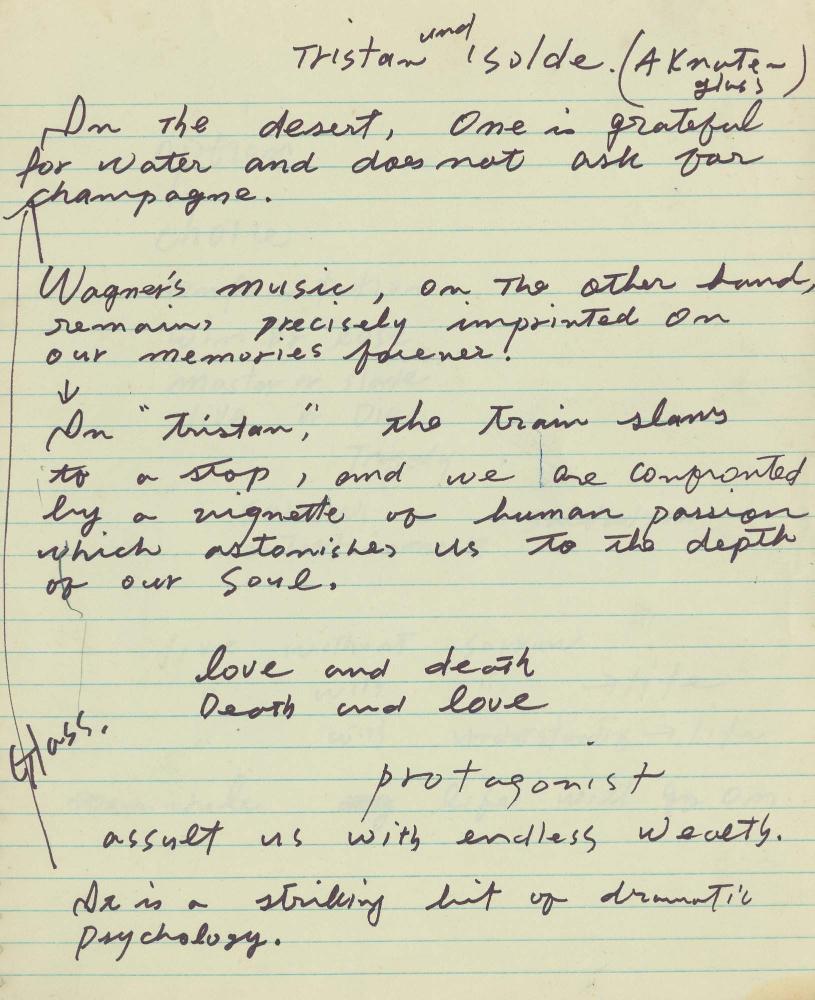 Tristan und Isolde. (A Knute-
glass)
In the desert, One is grateful
for water and does not ask for
champagne.
Wagner's music, on the other hand,
remains precisely imprinted on
our memories forever.
In "Tristan", the train slams
to a stop, and we are confronted
by a vignette of human passion
which astonishes us to the depth
of our soul.
love and death
Death and love
Glass.
protagonist
assult us with endless wealth.
It is a striking bit of dramatic
psychology.